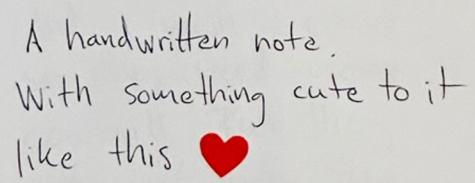 A handwritten note.
With something cute to it
like this ❤️